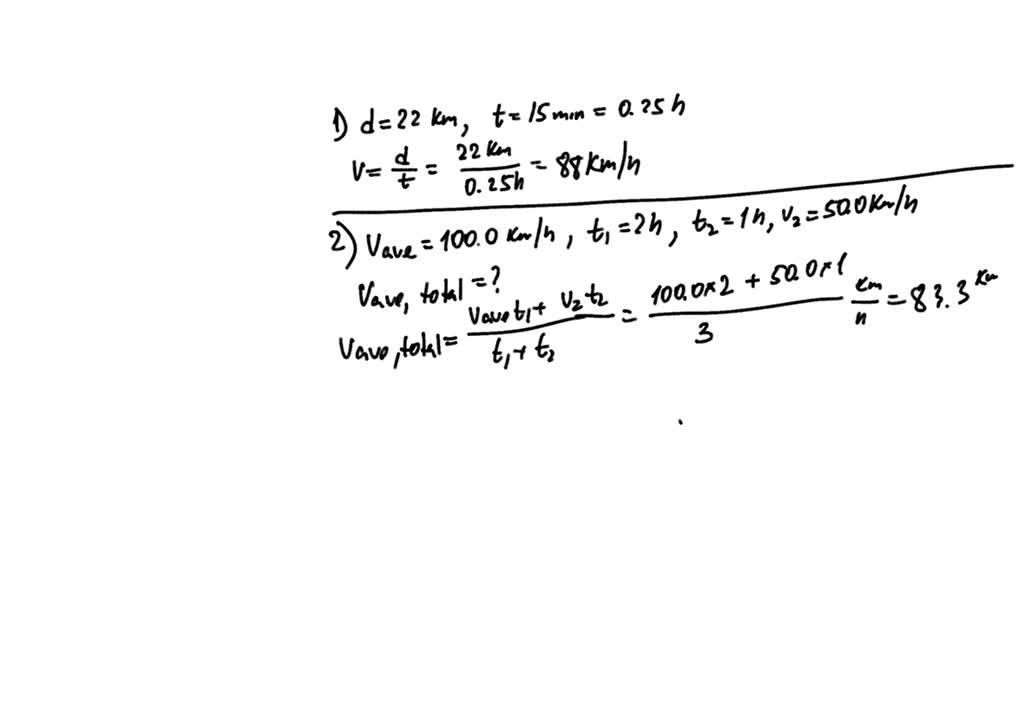 1) d=22 Km, t=15min=0.25h
V=d/t=22Km/0.25h=88Km/h
2) Vave=100.0 Km/h, t₁=2h, t₂=1h, V₂=50.0Km/h
Vave, total=?
Vave, total=(Vave t₁+ V₂ t₂)/(t₁+t₂)=(100.0×2+50.0×1)/3 Km/h=83.3 Km